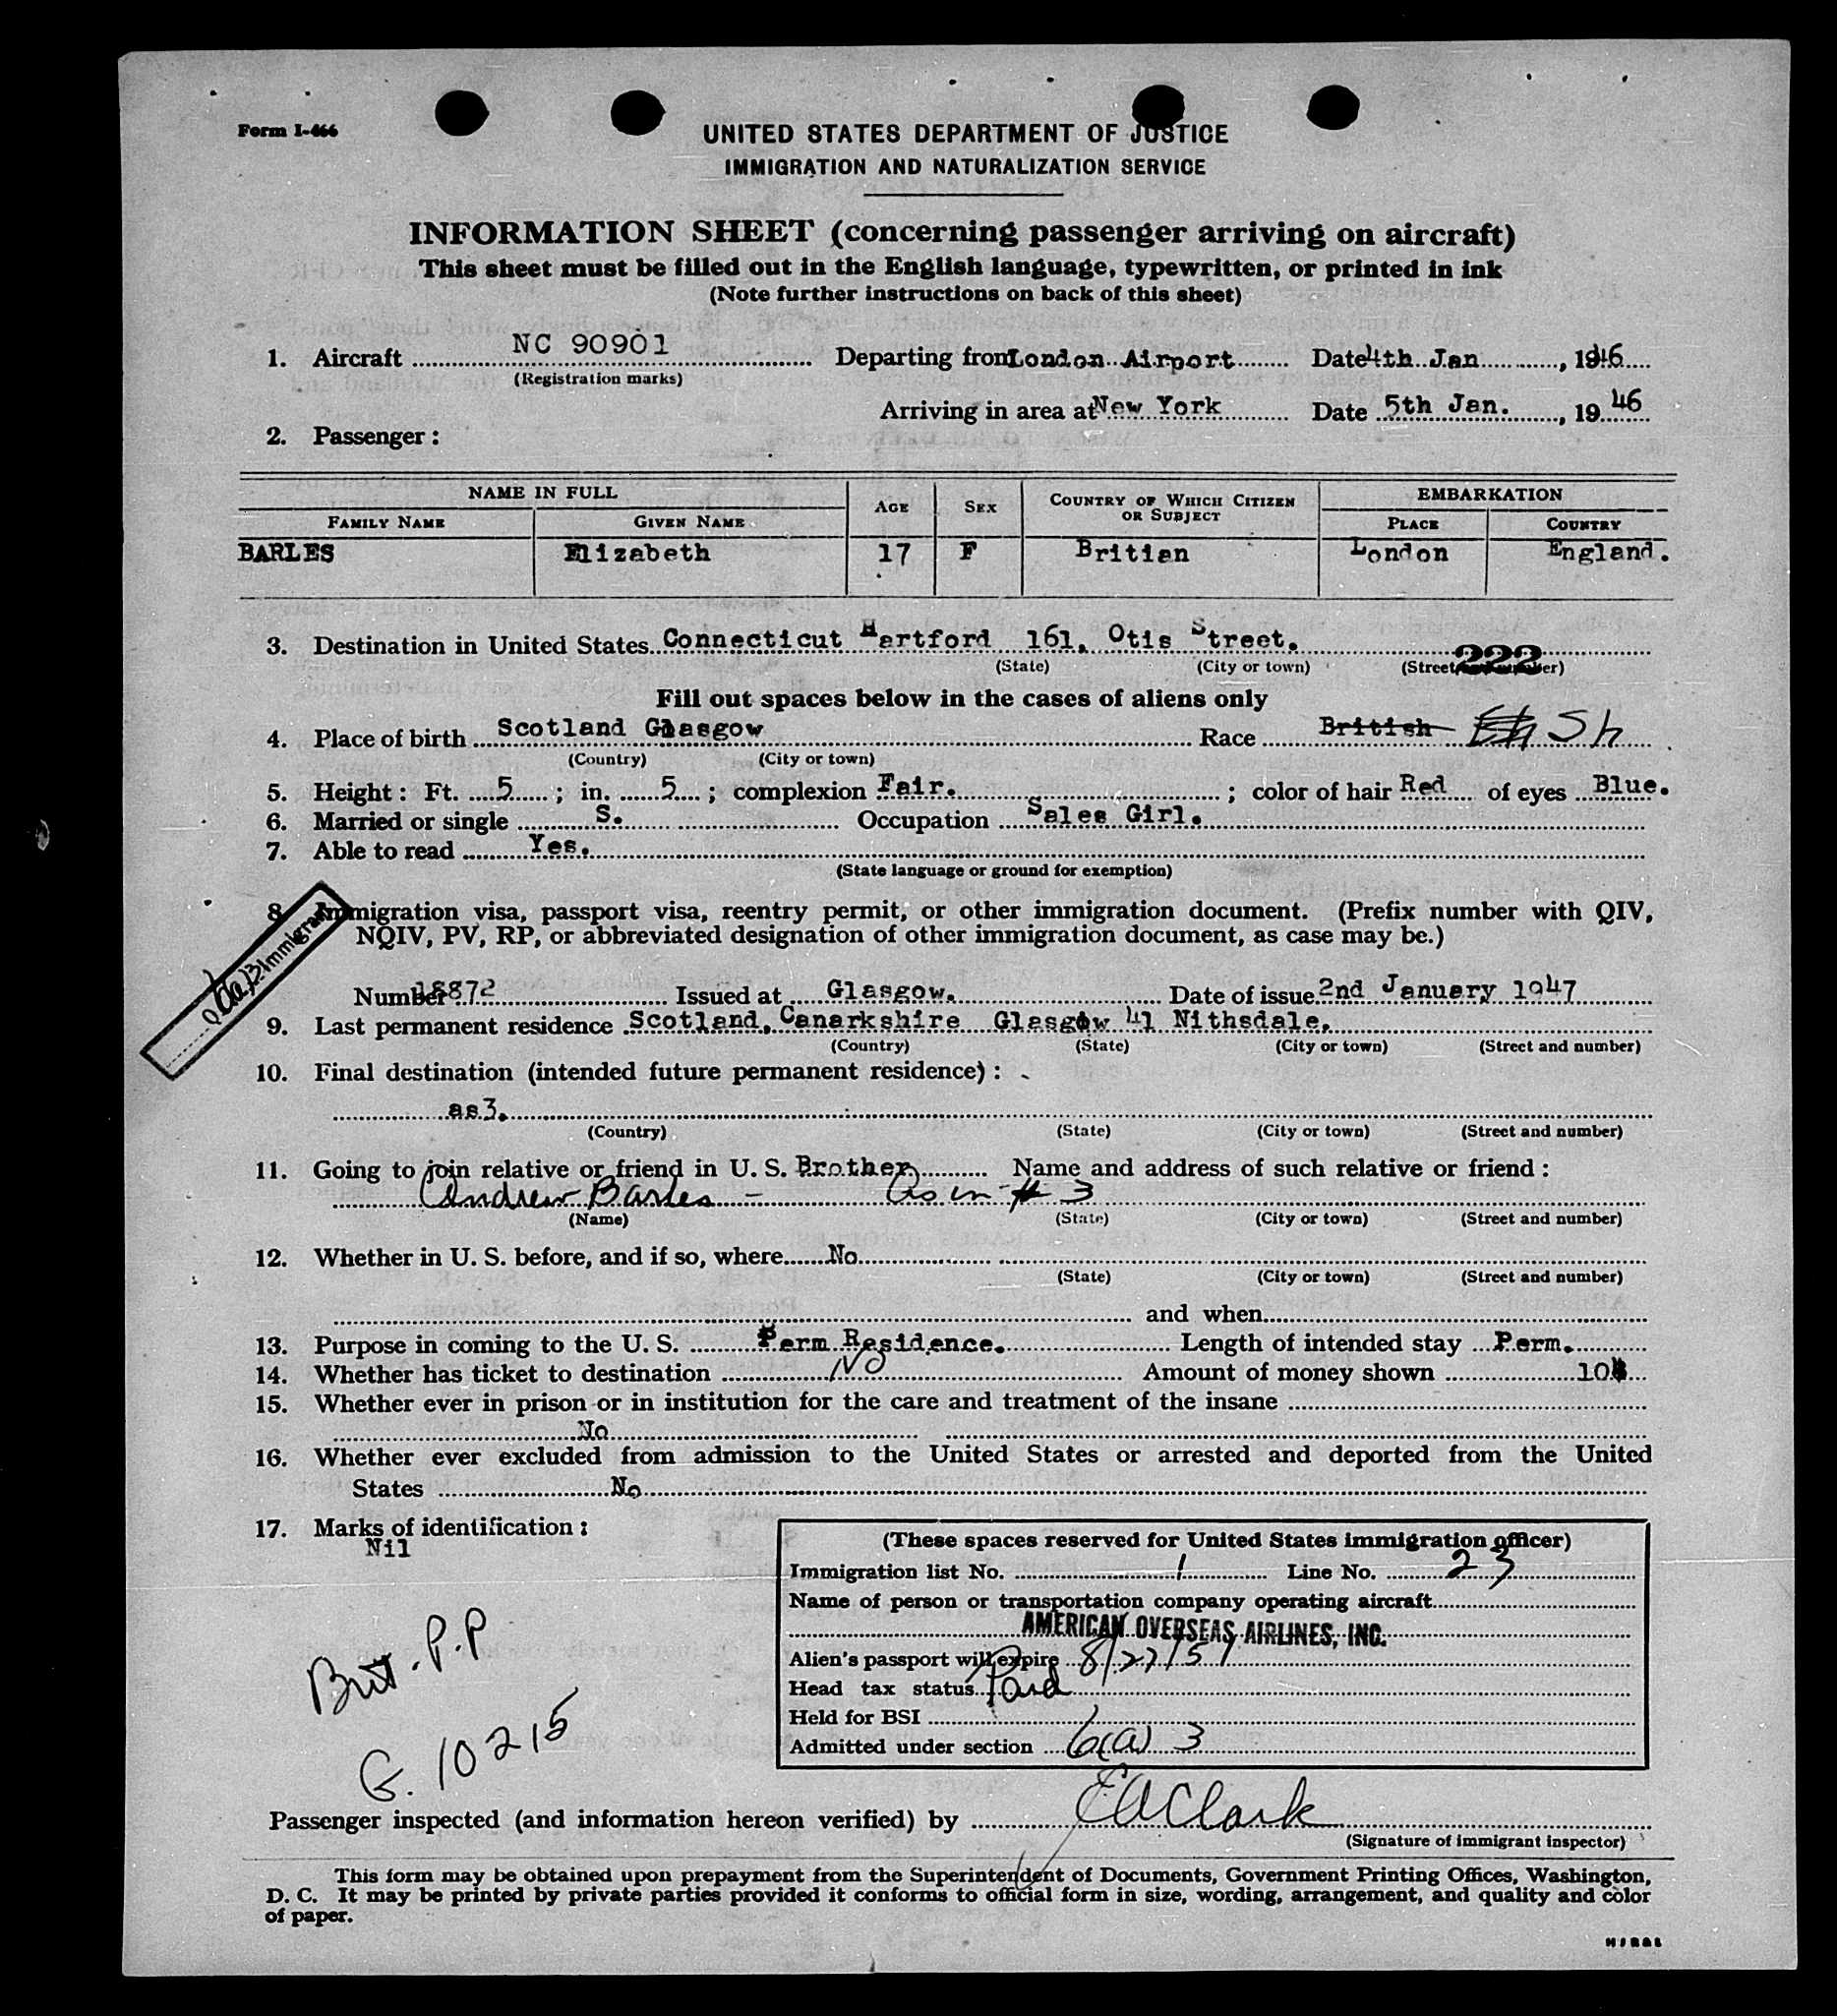 Form I-466
UNITED STATES DEPARTMENT OF JUSTICE
IMMIGRATION AND NATURALIZATION SERVICE
INFORMATION SHEET (concerning passenger arriving on aircraft)
This sheet must be filled out in the English language, typewritten, or printed in ink
(Note further instructions on back of this sheet)
1. Aircraft NC 90901 Departing from London Airport Date 4th Jan , 1946
(Registration marks)
Arriving in area at New York Date 5th Jan. , 19 46
2. Passenger:
NAME IN FULL EMBARKATION
FAMILY NAME GIVEN NAME AGE SEX COUNTRY OF WHICH CITIZEN OR SUBJECT PLACE COUNTRY
BARLES Elizabeth 17 F Britian London England.
3. Destination in United States Connecticut Hartford 161, Otis Street.
(State) (City or town) (Street and number) 222
Fill out spaces below in the cases of aliens only
4. Place of birth Scotland Glasgow Race British Sh
(Country) (City or town)
5. Height: Ft. 5 ; in. 5 ; complexion Fair. ; color of hair Red of eyes Blue.
6. Married or single S. Occupation Sales Girl.
7. Able to read Yes.
(State language or ground for exemption)
8. Immigration visa, passport visa, reentry permit, or other immigration document. (Prefix number with QIV,
NQIV, PV, RP, or abbreviated designation of other immigration document, as case may be.)
Immigrant
Number 18872 Issued at Glasgow. Date of issue 2nd January 1947
9. Last permanent residence Scotland, Canarkshire Glasgow 41 Nithsdale.
(Country) (State) (City or town) (Street and number)
10. Final destination (intended future permanent residence):
as3.
(Country) (State) (City or town) (Street and number)
11. Going to join relative or friend in U. S. Brother Name and address of such relative or friend:
Andrew Barles - As in # 3
(Name) (State) (City or town) (Street and number)
12. Whether in U. S. before, and if so, where No
(State) (City or town) (Street and number)
and when
13. Purpose in coming to the U. S. Perm Residence. Length of intended stay Perm.
14. Whether has ticket to destination NO Amount of money shown 10
15. Whether ever in prison or in institution for the care and treatment of the insane
No
16. Whether ever excluded from admission to the United States or arrested and deported from the United
States No
17. Marks of identification:
Nil
Brit. P.P
G. 10215
(These spaces reserved for United States immigration officer)
Immigration list No. 1 Line No. 23
Name of person or transportation company operating aircraft
AMERICAN OVERSEAS AIRLINES, INC.
Alien's passport will expire 8/27/51
Head tax status Paid
Held for BSI
Admitted under section 6(a) 3
Passenger inspected (and information hereon verified) by E A Clark
(Signature of immigrant inspector)
This form may be obtained upon prepayment from the Superintendent of Documents, Government Printing Offices, Washington,
D. C. It may be printed by private parties provided it conforms to official form in size, wording, arrangement, and quality and color
of paper.